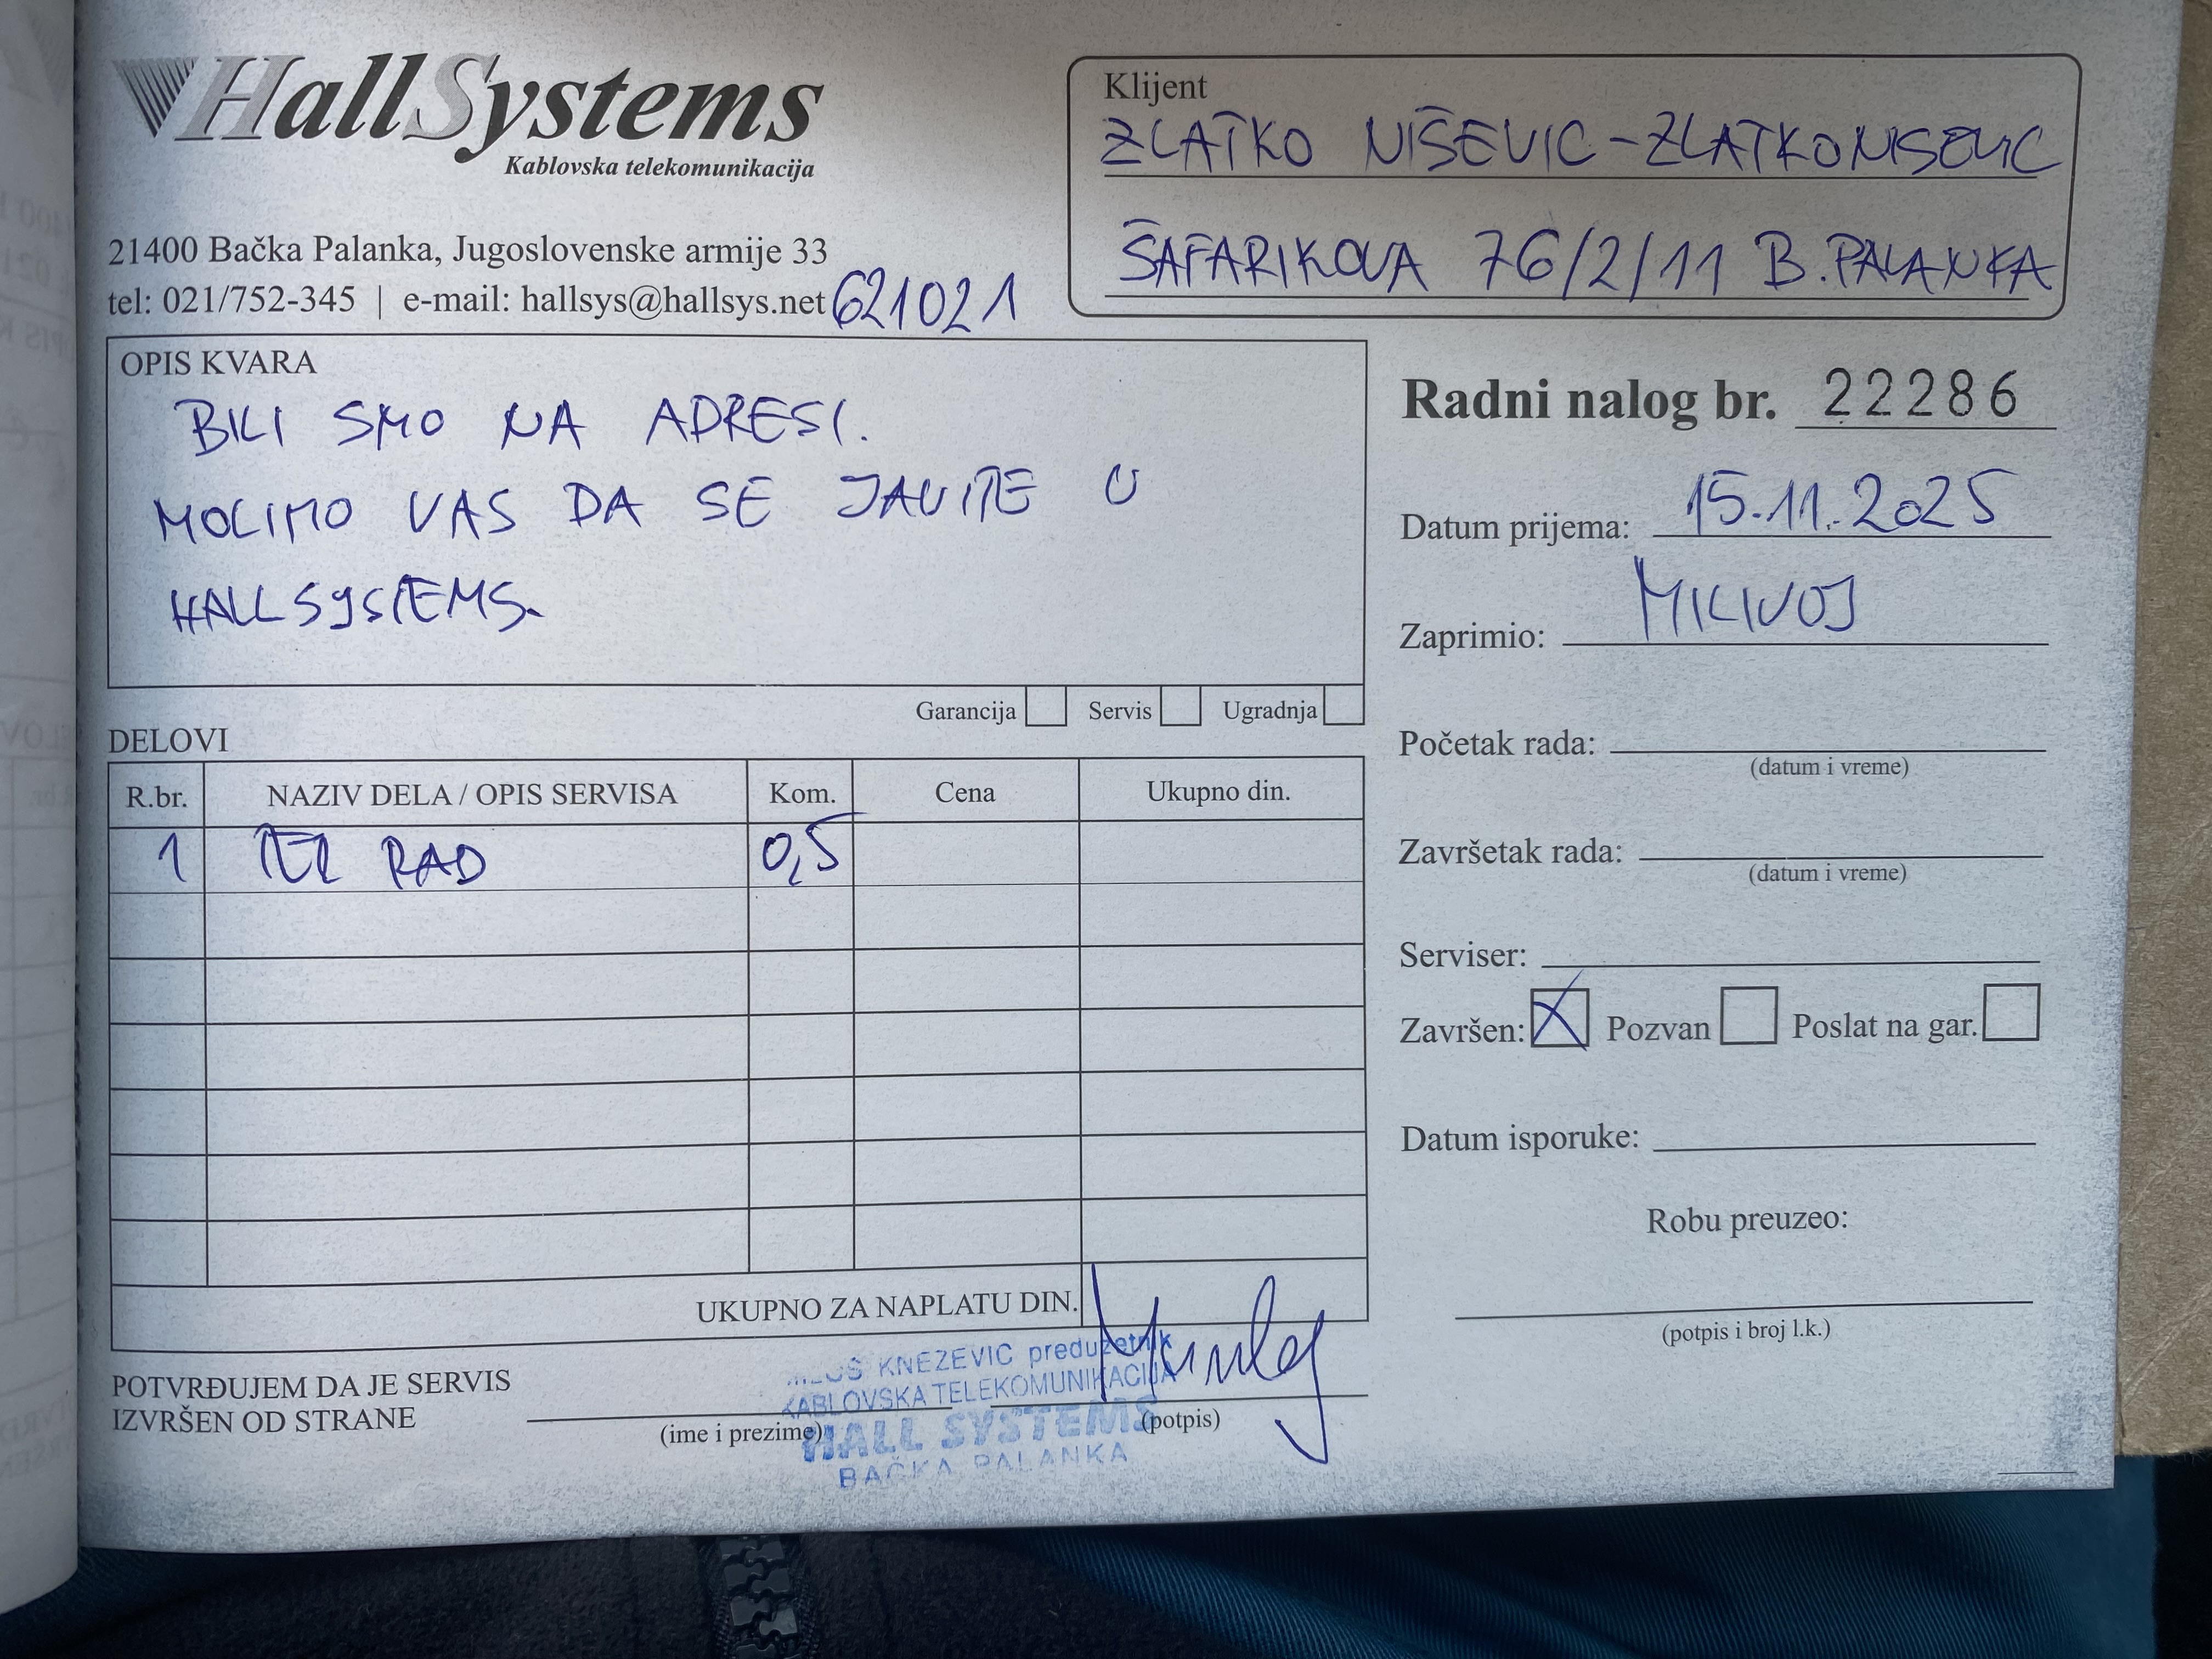 HallSystems
Kablovska telekomunikacija
21400 Bačka Palanka, Jugoslovenske armije 33
tel: 021/752-345 | e-mail: hallsys@hallsys.net 621021
Klijent
ZLATKO NIŠEVIC-ZLATKONISEVIC
ŠAFARIKOVA 76/2/11 B.PALANKA
OPIS KVARA
BILI SMO NA ADRESI.
MOLIMO VAS DA SE JAVITE U
HALLSYSTEMS.
Garancija Servis Ugradnja
Radni nalog br. 22286
Datum prijema: 15.11.2025
Zaprimio: MILIVOJ
Početak rada:
(datum i vreme)
Završetak rada:
(datum i vreme)
Serviser:
Završen: X Pozvan Poslat na gar.
Datum isporuke:
Robu preuzeo:
(potpis i broj l.k.)
DELOVI
R.br. NAZIV DELA / OPIS SERVISA Kom. Cena Ukupno din.
1 TER RAD 0,5
UKUPNO ZA NAPLATU DIN.
POTVRĐUJEM DA JE SERVIS
IZVRŠEN OD STRANE
(ime i prezime) (potpis)
KNEZEVIC preduzetnik
KABLOVSKA TELEKOMUNIKACIJA
HALL SYSTEMS
BAČKA PALANKA